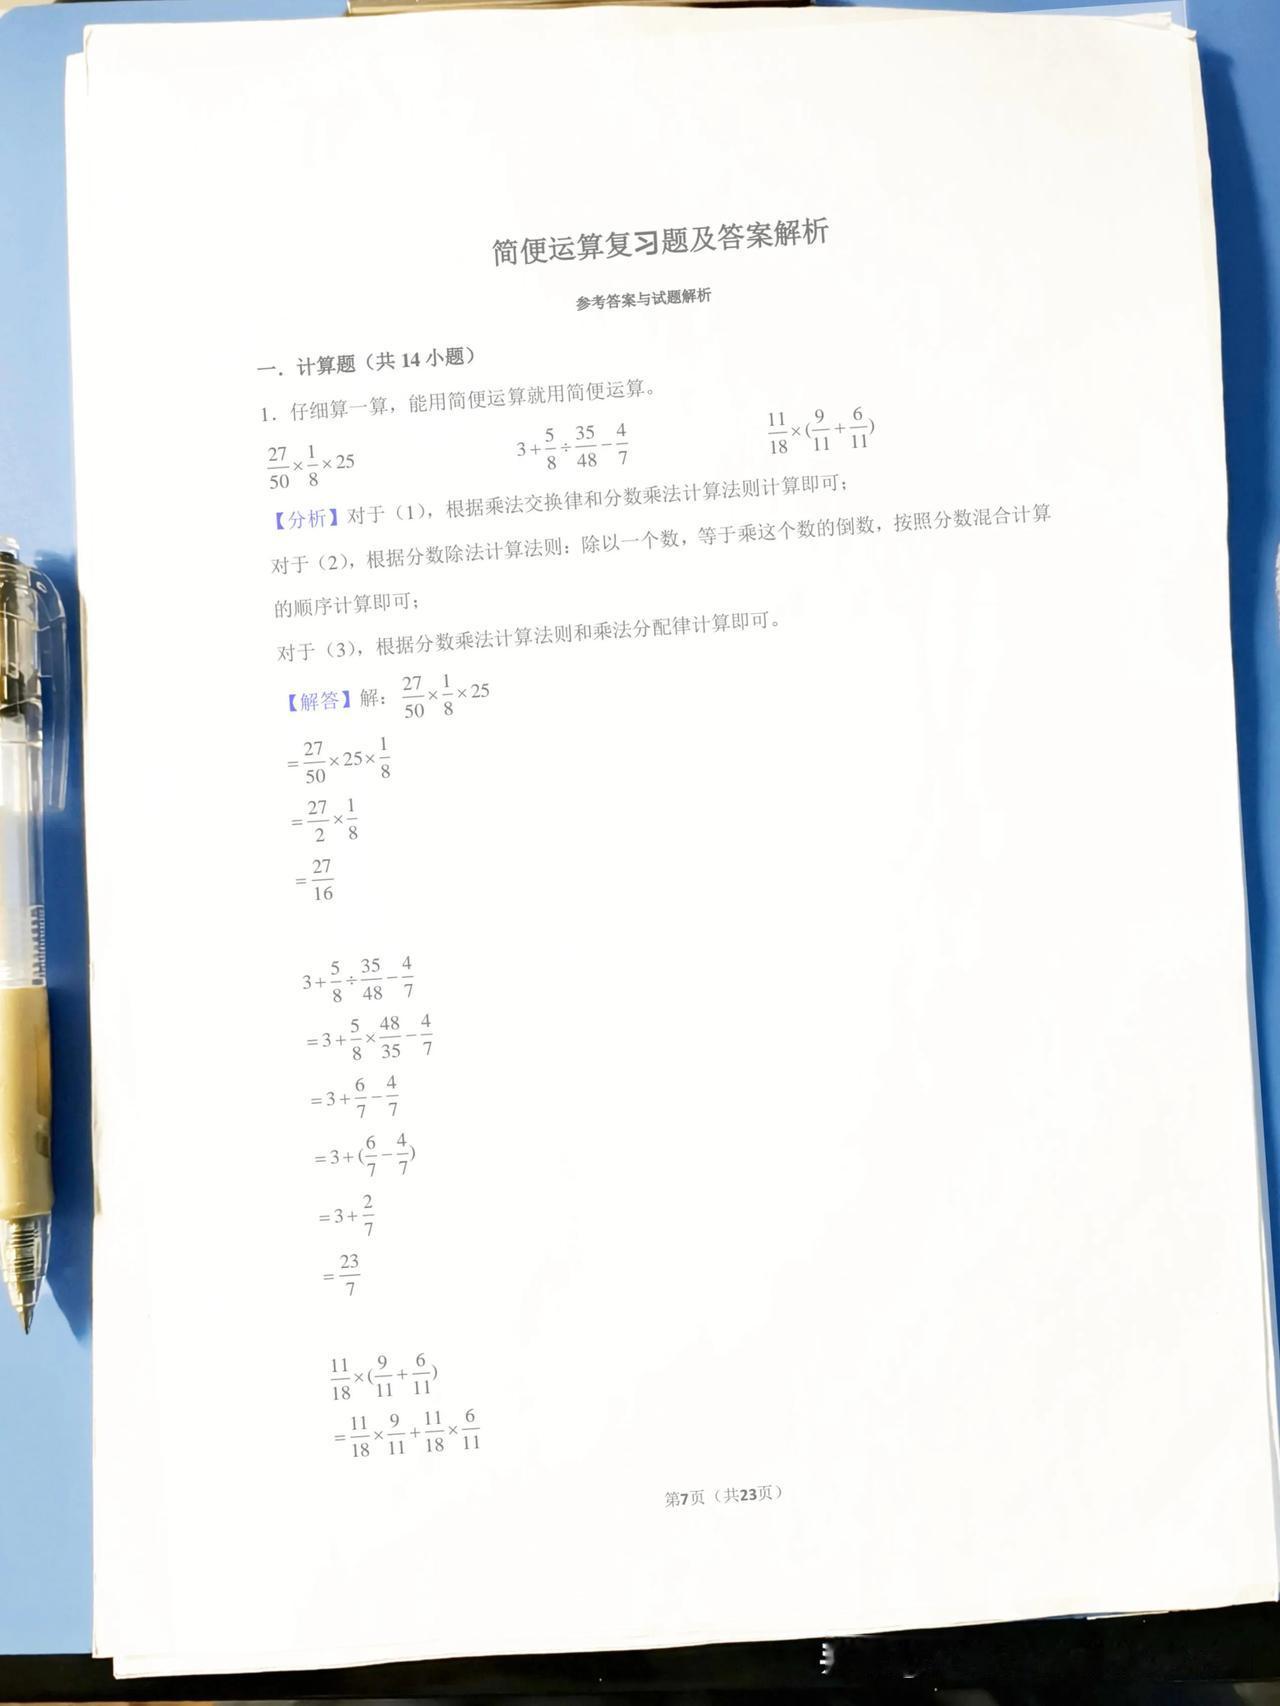 简便运算复习题及答案解析
参考答案与试题解析
一．计算题（共 14 小题）
1．仔细算一算，能用简便运算就用简便运算。
27/50×1/8×25 3+5/8÷35/48−4/7 11/18×(9/11+6/11)
【分析】对于（1），根据乘法交换律和分数乘法计算法则计算即可；
对于（2），根据分数除法计算法则：除以一个数，等于乘这个数的倒数，按照分数混合计算
的顺序计算即可；
对于（3），根据分数乘法计算法则和乘法分配律计算即可。
【解答】解：27/50×1/8×25
=27/50×25×1/8
=27/2×1/8
=27/16
3+5/8÷35/48−4/7
=3+5/8×48/35−4/7
=3+6/7−4/7
=3+(6/7−4/7)
=3+2/7
=23/7
11/18×(9/11+6/11)
=11/18×9/11+11/18×6/11
第7页（共23页）